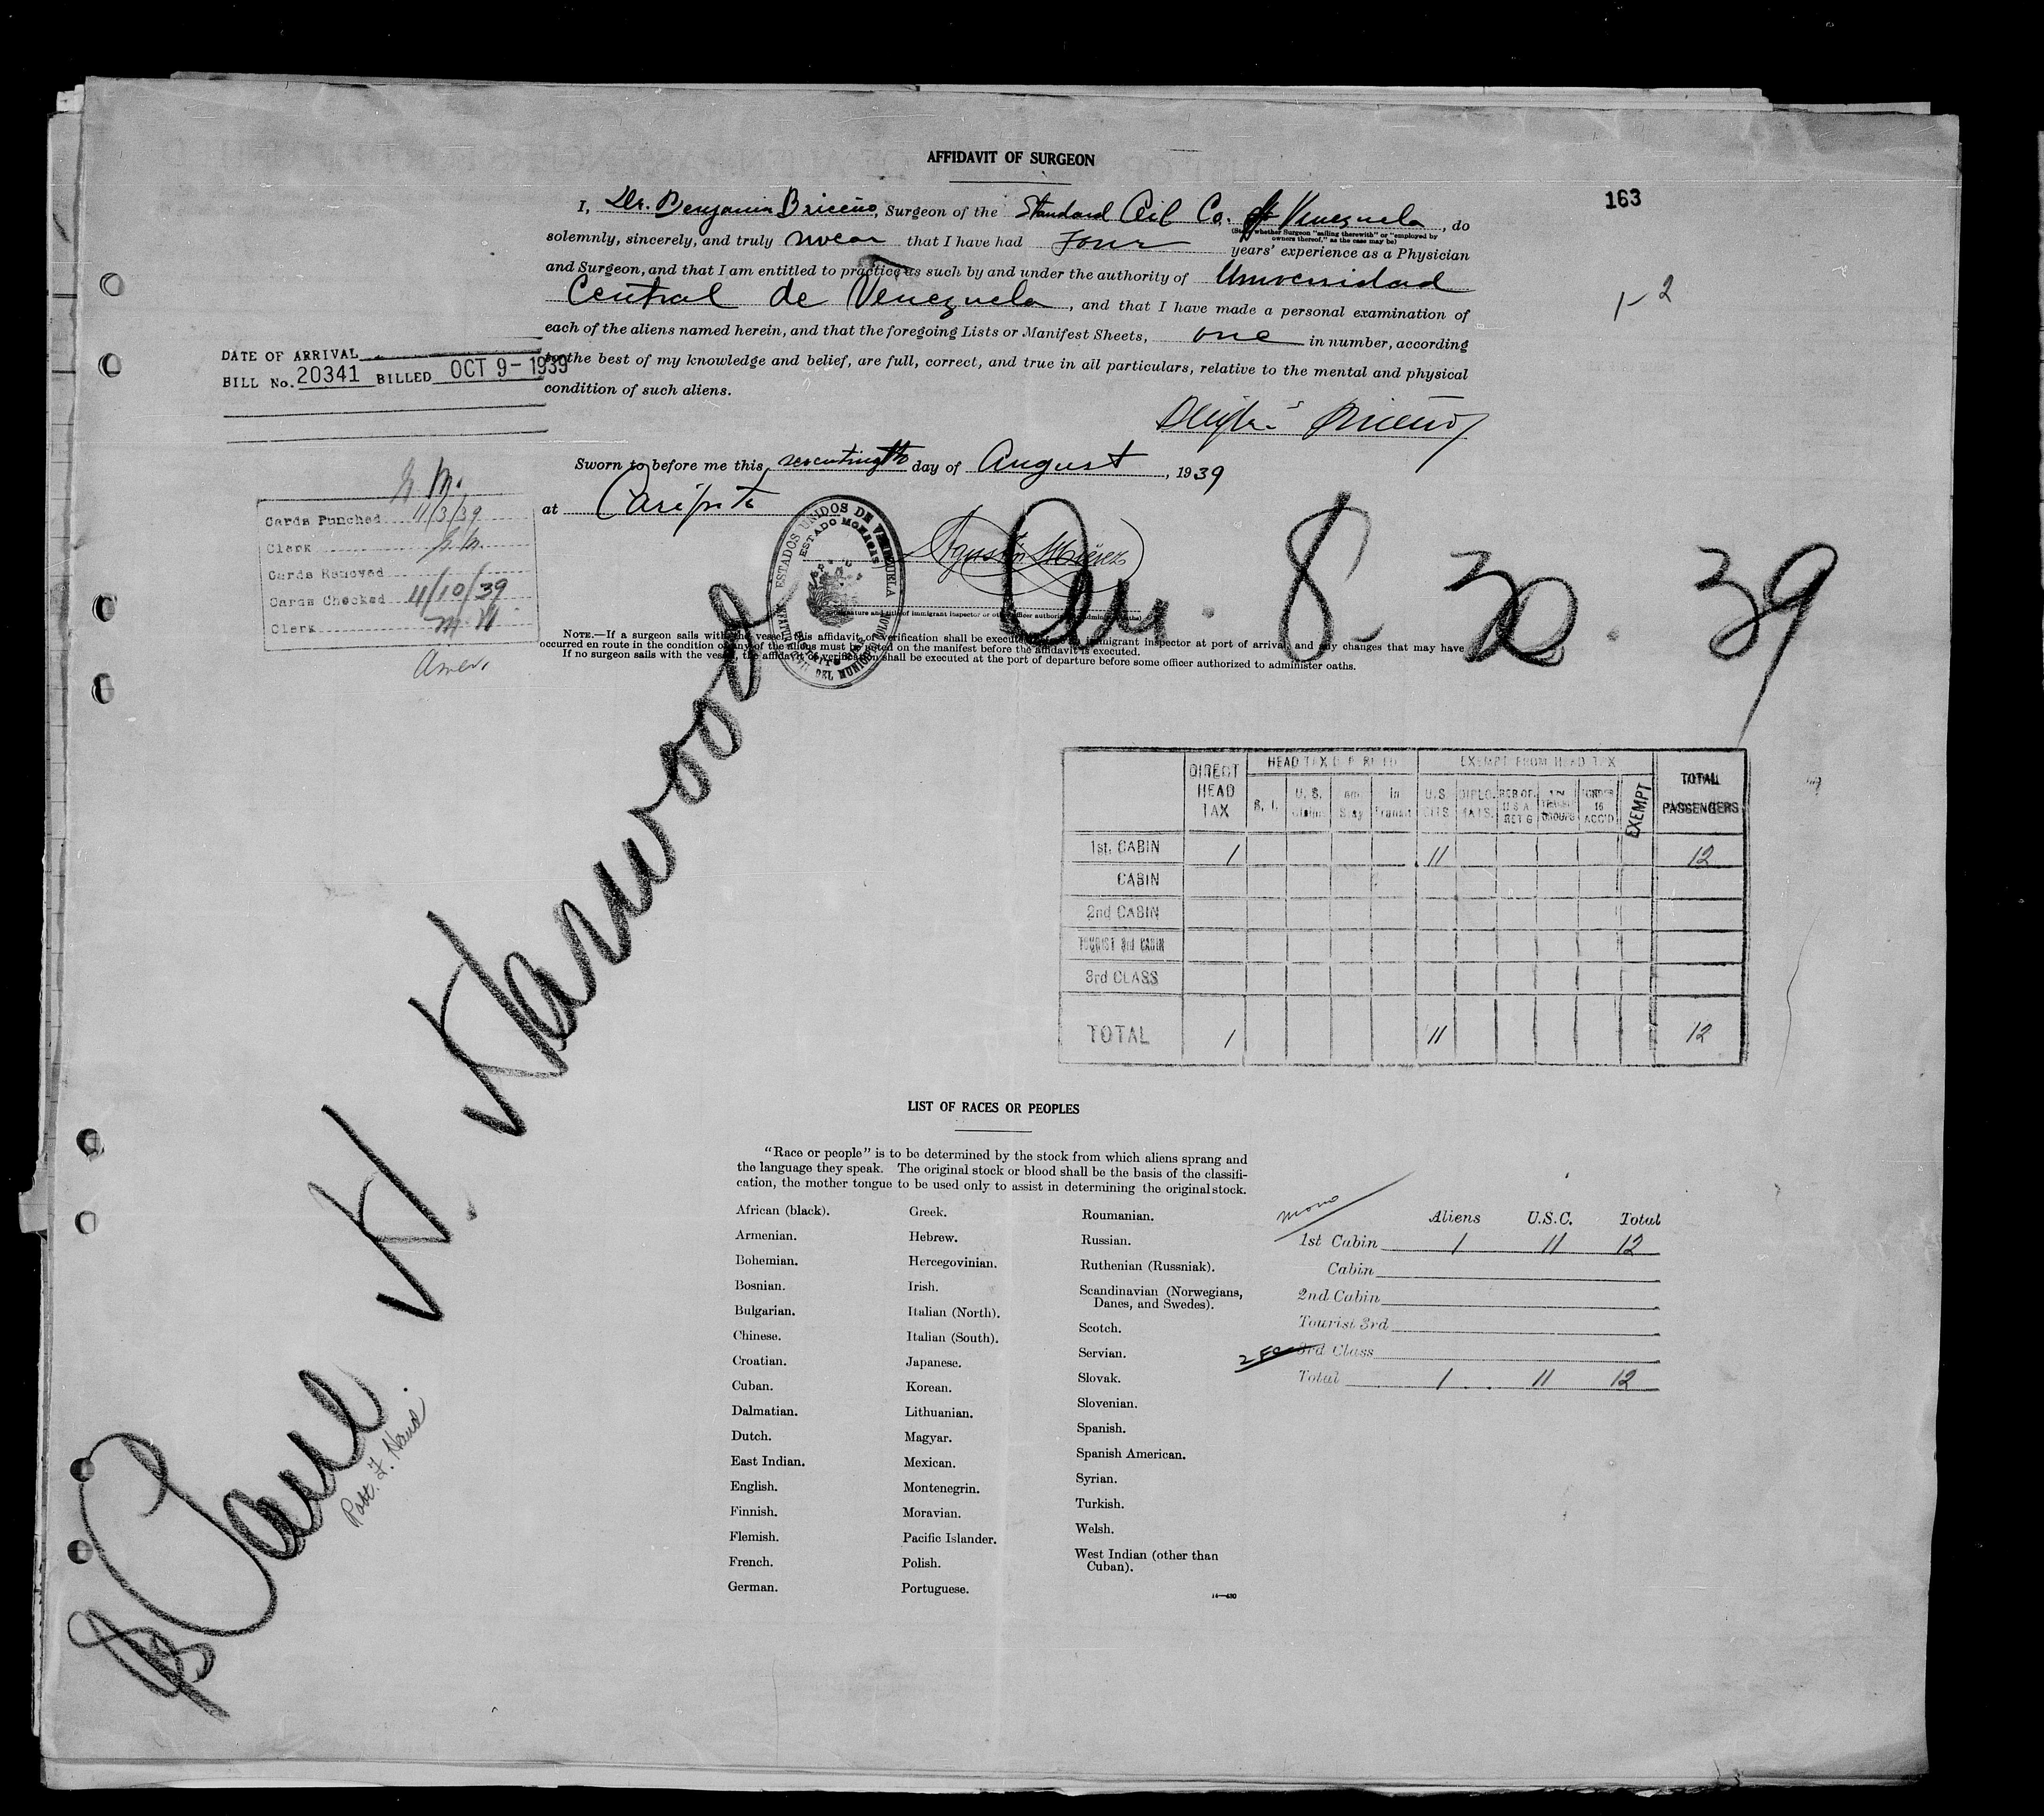 AFFIDAVIT OF SURGEON
163
I, Dr. Benjamin Briceño, Surgeon of the Standard Oil Co. of Venezuela, do
(State whether Surgeon "sailing therewith" or "employed by owners thereof," as the case may be)
solemnly, sincerely, and truly swear that I have had four years' experience as a Physician
and Surgeon, and that I am entitled to practice as such by and under the authority of Universidad
Central de Venezuela, and that I have made a personal examination of
each of the aliens named herein, and that the foregoing Lists or Manifest Sheets, one in number, according
to the best of my knowledge and belief, are full, correct, and true in all particulars, relative to the mental and physical
condition of such aliens.
1-2
DATE OF ARRIVAL
BILL No. 20341 BILLED OCT 9-1939
Briceño
Sworn to before me this day of August, 1939
at Caripito
Cards Punched 11/3/39
Clerk
Cards Removed
Cards Checked 11/10/39
Clerk M. W.
Amer.
ESTADOS UNIDOS DE VENEZUELA
ESTADO MONAGAS
Arr. 8-30-39
(Signature and title of immigrant inspector or other officer authorized to administer oaths)
NOTE.—If a surgeon sails with the vessel, this affidavit of verification shall be executed before an immigrant inspector at port of arrival, and any changes that may have
occurred en route in the condition of any of the aliens must be noted on the manifest before the affidavit is executed.
If no surgeon sails with the vessel, the affidavit of verification shall be executed at the port of departure before some officer authorized to administer oaths.
SS Paul H. Harwood
Robt. F. Hand.
DIRECT HEAD TAX
HEAD TAX DEFERRED
EXEMPT FROM HEAD TAX
TOTAL PASSENGERS
S. I. U. S. Claims Stay In Transit U.S. CITS. DIPLOMATS. RES OF U S A RET'G GROUPS UNDER 16 ACC'D EXEMPT
1st. CABIN 1 11 12
CABIN
2nd CABIN
TOURIST 3rd CABIN
3rd CLASS
TOTAL 1 11 12
LIST OF RACES OR PEOPLES
"Race or people" is to be determined by the stock from which aliens sprang and
the language they speak. The original stock or blood shall be the basis of the classifi-
cation, the mother tongue to be used only to assist in determining the original stock.
African (black).
Armenian.
Bohemian.
Bosnian.
Bulgarian.
Chinese.
Croatian.
Cuban.
Dalmatian.
Dutch.
East Indian.
English.
Finnish.
Flemish.
French.
German.
Greek.
Hebrew.
Hercegovinian.
Irish.
Italian (North).
Italian (South).
Japanese.
Korean.
Lithuanian.
Magyar.
Mexican.
Montenegrin.
Moravian.
Pacific Islander.
Polish.
Portuguese.
Roumanian.
Russian.
Ruthenian (Russniak).
Scandinavian (Norwegians,
Danes, and Swedes).
Scotch.
Servian.
Slovak.
Slovenian.
Spanish.
Spanish American.
Syrian.
Turkish.
Welsh.
West Indian (other than
Cuban).
14—430
Aliens U.S.C. Total
1st Cabin 1 11 12
Cabin
2nd Cabin
Tourist 3rd
3rd Class
Total 1 11 12